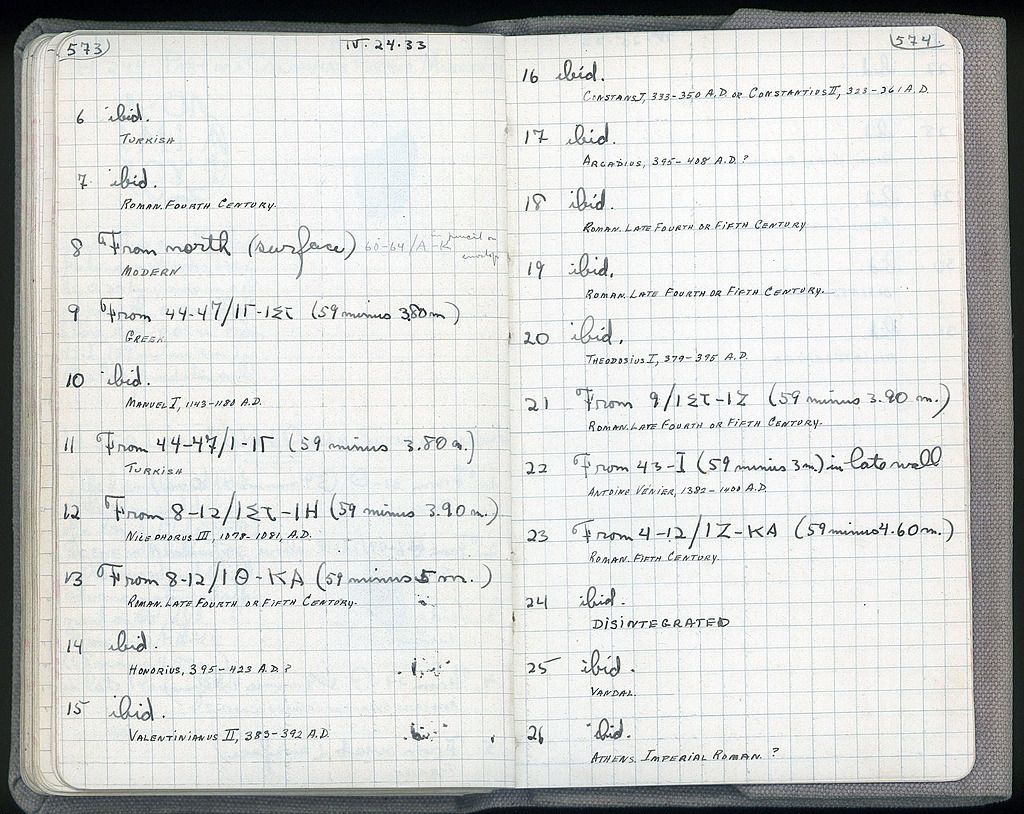 573
IV. 24.33
6 ibid.
TURKISH
7. ibid.
ROMAN. FOURTH CENTURY.
8 From north (surface) 60-64/A-K in pencil on envelope
MODERN
9 From 44-47/ΙΓ-ΙΣΤ (59 minus 3.80m)
GREEK
10 ibid.
MANUEL I, 1143-1180 A.D.
11 From 44-47/Ι-ΙΓ (59 minus 3.80 m.)
TURKISH
12 From 8-12/ΙΣΤ-ΙΗ (59 minus 3.90 m.)
NICEPHORUS III, 1078-1081, A.D.
13 From 8-12/ΙΘ-ΚΑ (59 minus 5 m.)
ROMAN. LATE FOURTH OR FIFTH CENTURY.
14 ibid.
HONORIUS, 395-423 A.D.?
15 ibid.
VALENTINIANUS II, 383-392 A.D.
574
16 ibid.
CONSTANS I, 333-350 A.D. OR CONSTANTIUS II, 323-361 A.D.
17 ibid.
ARCADIUS, 395-408 A.D.?
18 ibid.
ROMAN. LATE FOURTH OR FIFTH CENTURY
19 ibid.
ROMAN. LATE FOURTH OR FIFTH CENTURY.
20 ibid.
THEODOSIUS I, 379-395 A.D.
21 From 9/ΙΣΤ-ΙΖ (59 minus 3.90 m.)
ROMAN. LATE FOURTH OR FIFTH CENTURY.
22 From 43-I (59 minus 3m.) in late wall
ANTOINE VENIER, 1382-1400 A.D.
23 From 4-12/ΙΖ-ΚΑ (59 minus 4.60 m.)
ROMAN. FIFTH CENTURY.
24 ibid.
DISINTEGRATED
25 ibid.
VANDAL.
26 ibid.
ATHENS. IMPERIAL ROMAN. ?